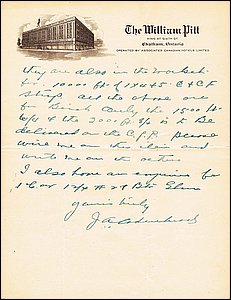 The William Pitt
KING AT SIXTH ST
Chatham, Ontario
OPERATED BY ASSOCIATED CANADIAN HOTELS LIMITED
they are also in the market
for 10000 ft of 1x4 & 5 C & CF
Strips all the above are
for Birch Only the 1500 ft
the 2000 ft is to Be
delivered on the C.P.R. please
wire me on this item and
write me on the others
I also have an enquiry for
1 Car Elm
yours truly